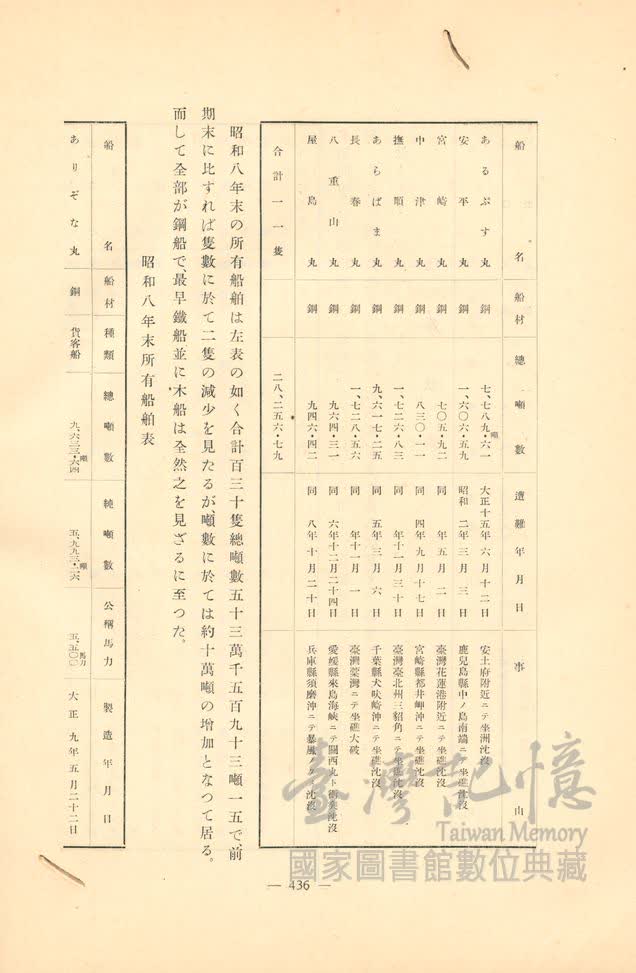 船名 船材 總噸數 遭難年月日 事由
あるぷす丸 鋼 七、七八九・六一噸 大正十五年六月十二日 安土府附近ニテ坐洲沈沒
安平丸 鋼 一、六〇六・五九 昭和二年三月三日 鹿兒島縣中ノ島南端ニテ坐礁沈沒
宮崎丸 鋼 七〇五・九二 同年五月二日 臺灣花蓮港附近ニテ坐礁沈沒
中津丸 鋼 八三〇・一一 同四年九月十七日 宮崎縣都井岬沖ニテ坐礁沈沒
撫順丸 鋼 一、七二六・八三 同年十一月三十日 臺灣臺北州三貂角ニテ坐礁沈沒
あらばま丸 鋼 九、六一七・二五 同五年三月六日 千葉縣犬吠崎沖ニテ坐礁沈沒
長春丸 鋼 一、七二八・五六 同年十一月一日 臺灣灣ニテ坐礁大破
八重山丸 鋼 九六四・三一 同六年十二月二十四日 愛媛縣來島海峽ニテ關西丸ト衝突沈沒
屋島丸 鋼 九四六・四二 同八年十月二十日 兵庫縣須磨沖ニテ暴風ノタ沈沒
合計一一隻 二八、二五六・七九
昭和八年末の所有船舶は左表の如く合計百三十隻總噸數五十三萬千五百九十三噸一五で、前
期末に比すれば隻數に於て二隻の減少を見たるが、噸數に於ては約十萬噸の增加となつて居る。
而して全部が鋼船で、最早鐵船並に木船は全然之を見ざるに至つた。
昭和八年末所有船舶表
船名 船材 種類 總噸數 純噸數 公稱馬力 製造年月日
ありぞな丸 鋼 貨客船 九、六三三・六四噸 五、九九三・二六噸 五、五〇〇馬力 大正九年五月二十二日
— 436 —
臺灣記憶
Taiwan Memory
國家圖書館數位典藏